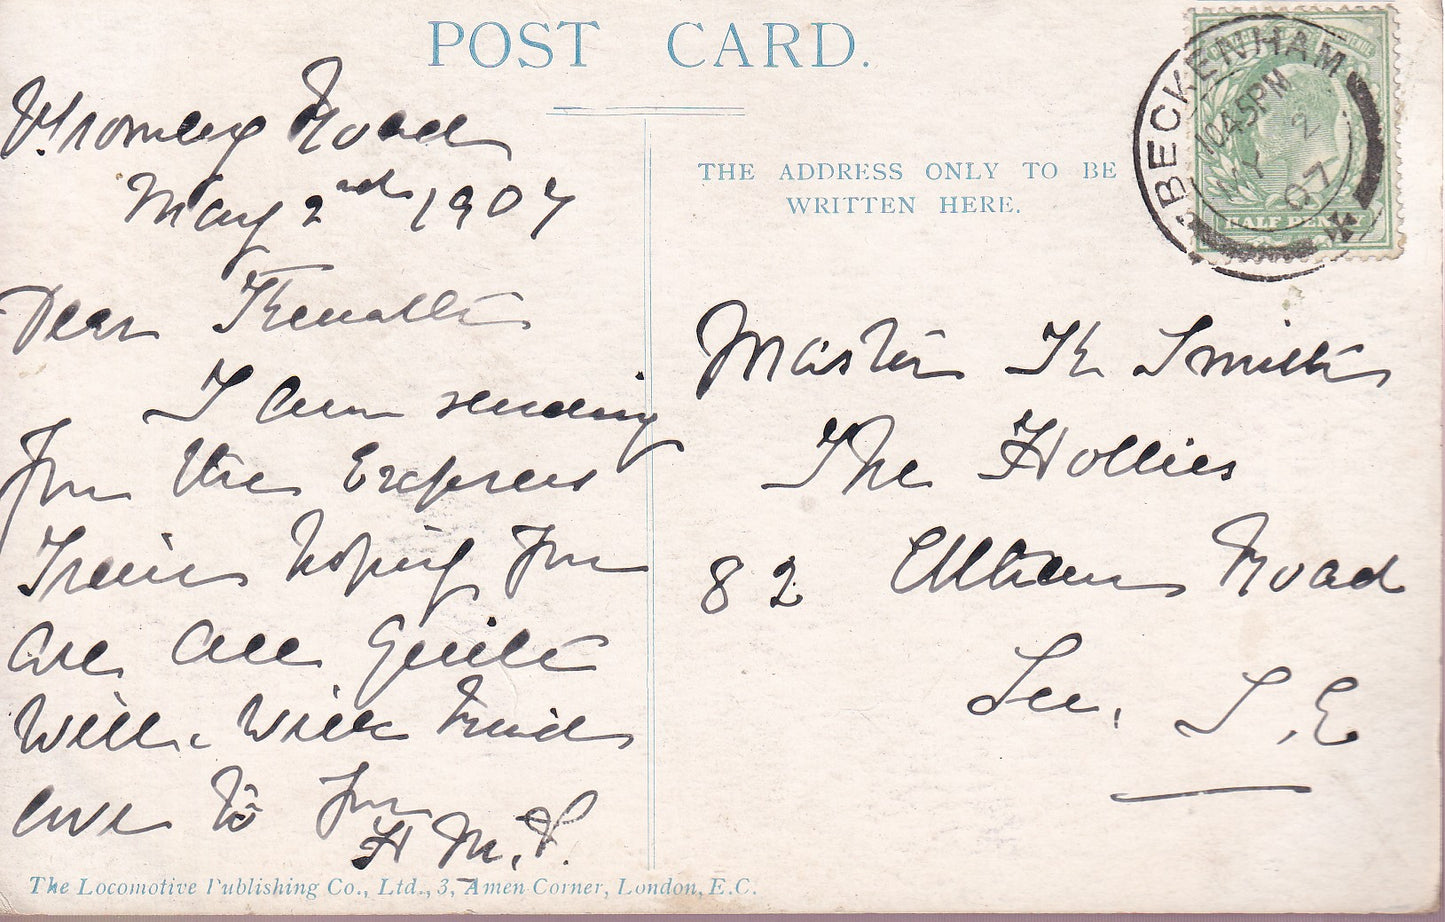 POST CARD.
THE ADDRESS ONLY TO BE
WRITTEN HERE.
BECKENHAM
10.45PM
MY 2
07
HALF PENNY
Bromley Road
May 2nd 1907
Dear Kenneth
I am sending
you the Express
Train hoping you
are all quite
well. with kind
love to you
H M. S.
Master K Smith
The Hollies
82 Eltham Road
Lee, S.E
The Locomotive Publishing Co., Ltd., 3, Amen Corner, London, E.C.